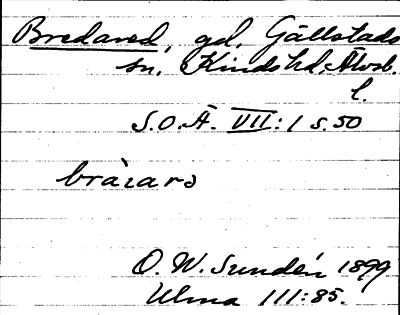 Bredared, gd, Gällstads
sn, Kinds hd. Älvsb.
l.
S.O.Ä. VII:1 s. 50
bràʒarə
O. W. Sundén 1899
Ulma 111:85.